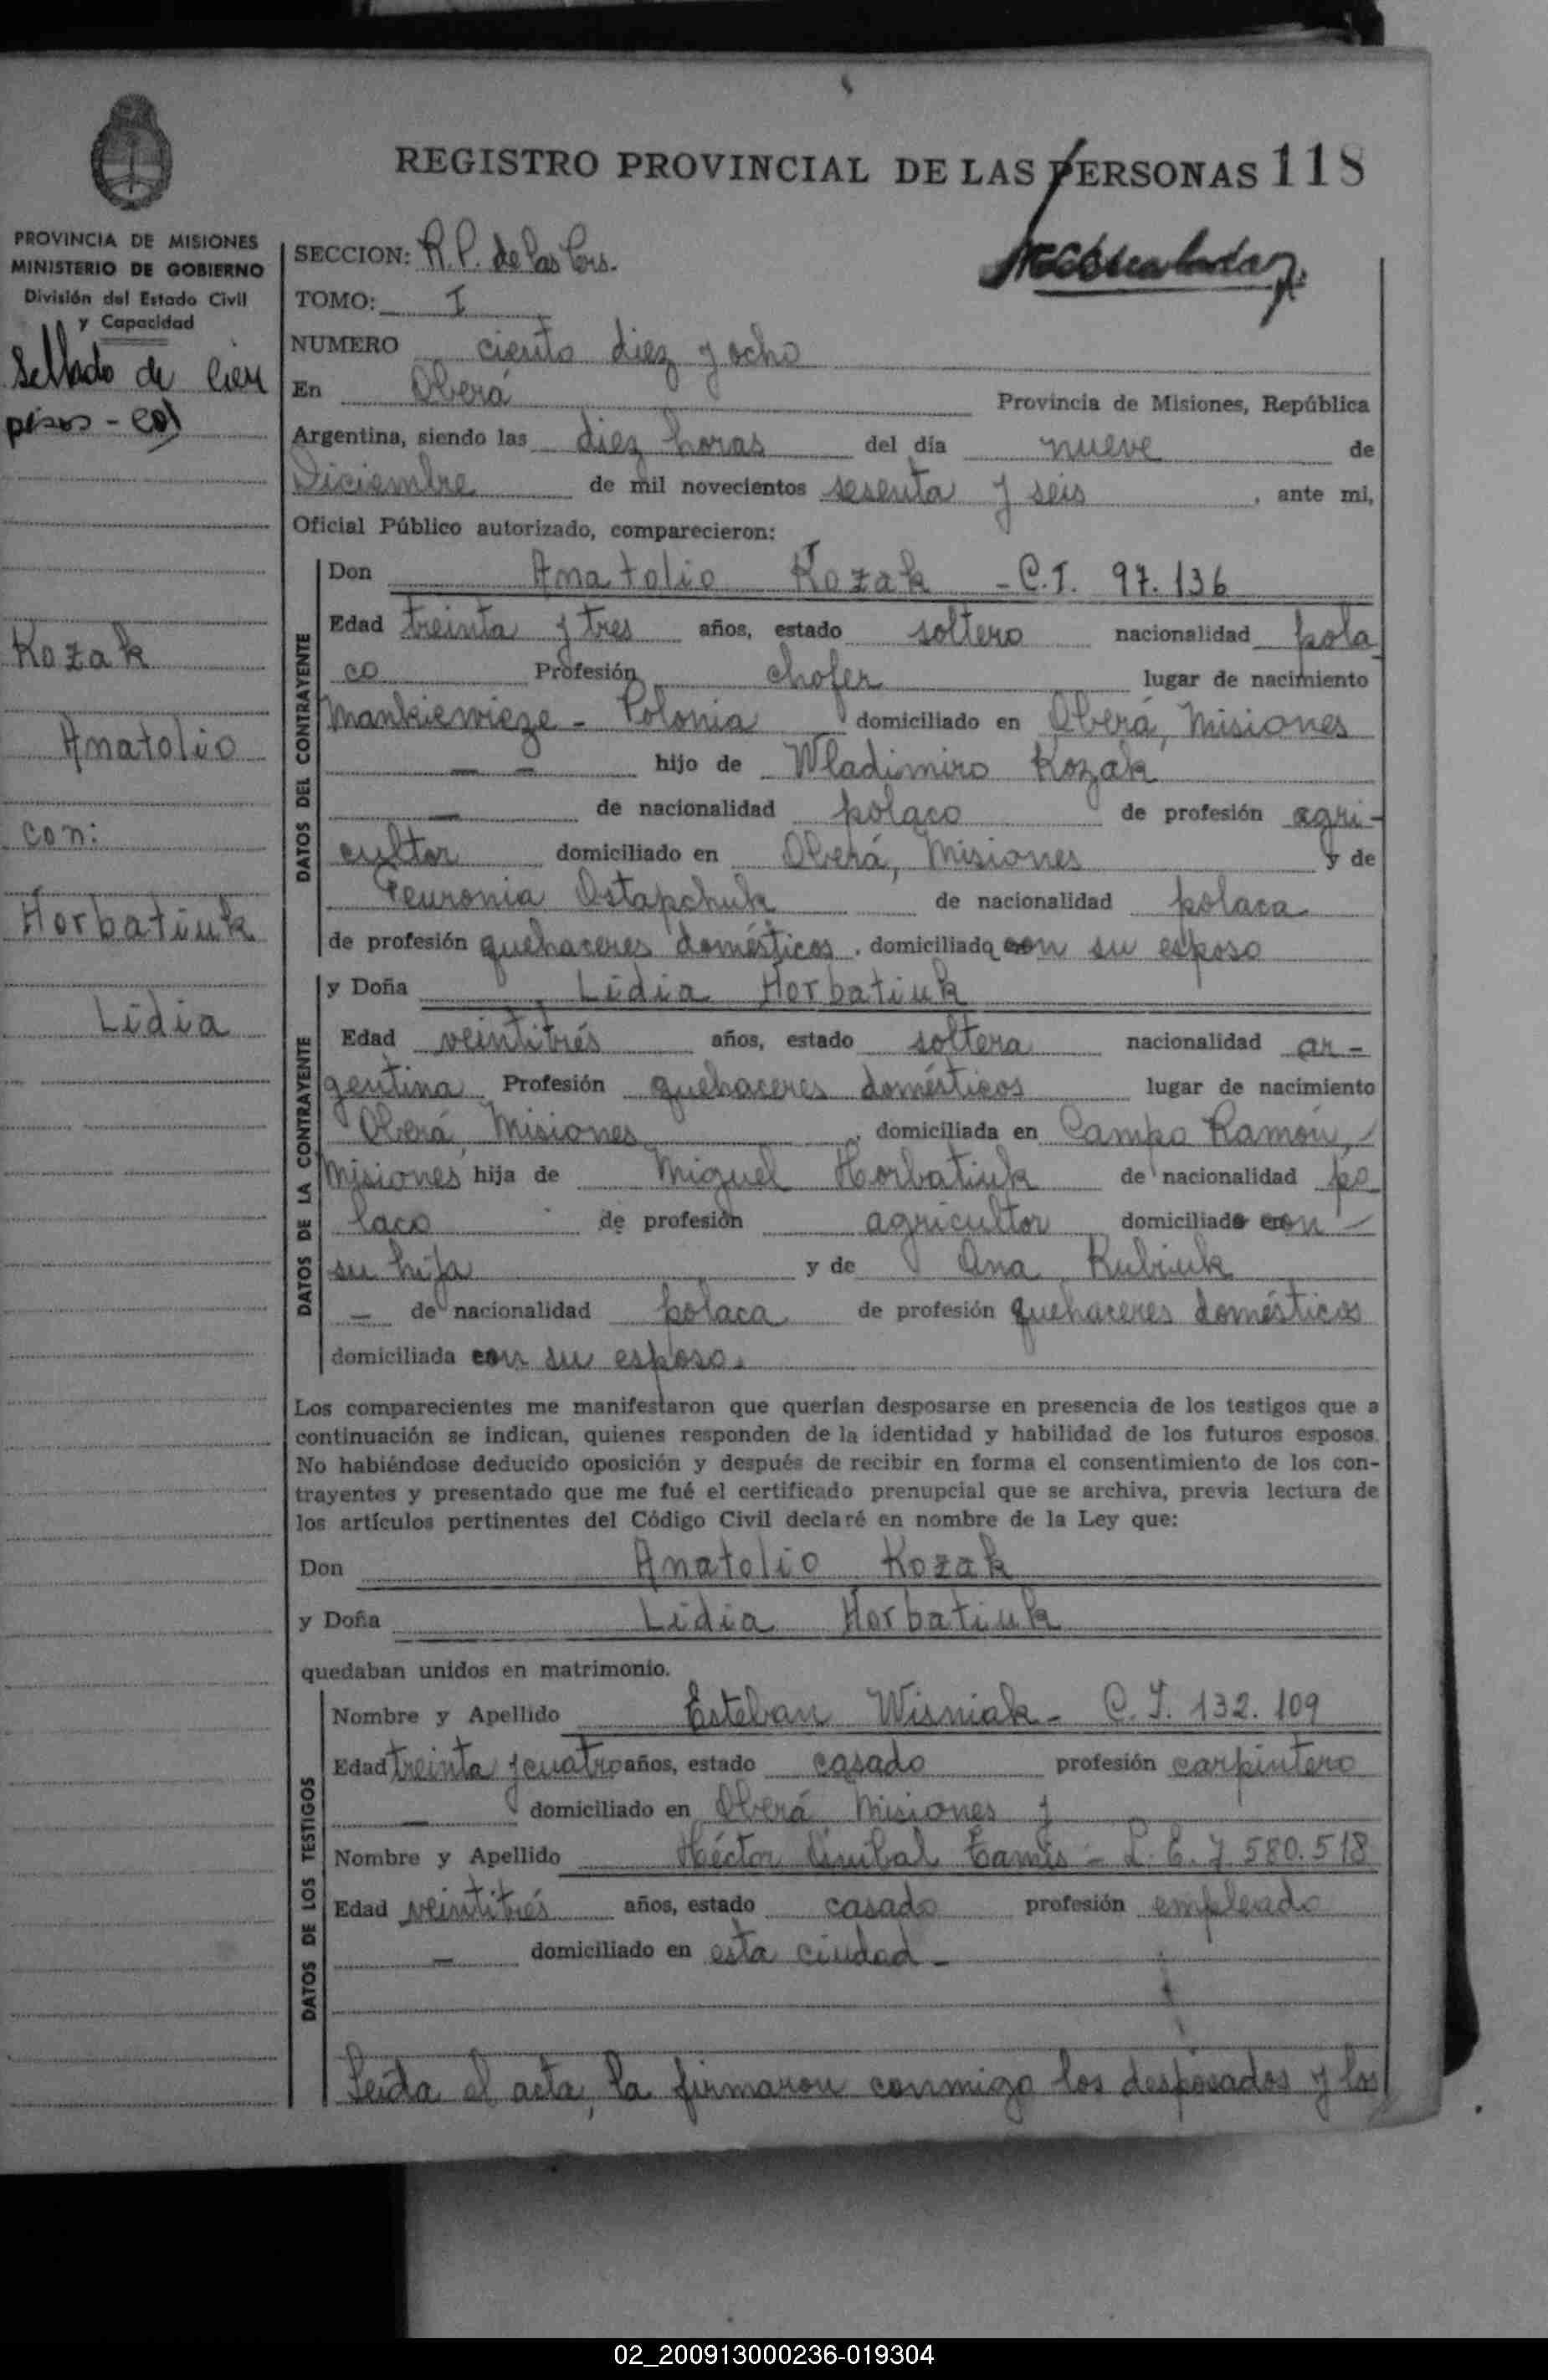 REGISTRO PROVINCIAL DE LAS PERSONAS 118
PROVINCIA DE MISIONES
MINISTERIO DE GOBIERNO
División del Estado Civil
y Capacidad
Sellado de cien
pesos -
Kozak
Anatolio
con:
Horbatiuk
Lidia
SECCION: R.P. de las
TOMO: I
NUMERO ciento diez y ocho
En Oberá Provincia de Misiones, República
Argentina, siendo las diez horas del día nueve de
Diciembre de mil novecientos sesenta y seis, ante mi,
Oficial Público autorizado, comparecieron:
DATOS DEL CONTRAYENTE
Don Anatolio Kozak - C.I. 97.136
Edad treinta y tres años, estado soltero nacionalidad pola
co Profesión chofer lugar de nacimiento
Mankiewieze - Polonia domiciliado en Oberá, Misiones
— — hijo de Wladimiro Kozak
— de nacionalidad polaco de profesión agri-
cultor domiciliado en Oberá, Misiones y de
Feuronia Ostapchuk de nacionalidad polaca
de profesión quehaceres domésticos, domiciliada con su esposo
DATOS DE LA CONTRAYENTE
y Doña Lidia Horbatiuk
Edad veintitrés años, estado soltera nacionalidad ar-
gentina Profesión quehaceres domésticos lugar de nacimiento
Oberá, Misiones, domiciliada en Campo Ramón,
Misiones hija de Miguel Horbatiuk de nacionalidad po
laco de profesión agricultor domiciliado con —
su hija y de Ana Kubiuk
— de nacionalidad polaca de profesión quehaceres domésticos
domiciliada con su esposo.
Los comparecientes me manifestaron que querían desposarse en presencia de los testigos que a
continuación se indican, quienes responden de la identidad y habilidad de los futuros esposos.
No habiéndose deducido oposición y después de recibir en forma el consentimiento de los con-
trayentes y presentado que me fué el certificado prenupcial que se archiva, previa lectura de
los artículos pertinentes del Código Civil declaré en nombre de la Ley que:
Don Anatolio Kozak
y Doña Lidia Horbatiuk
quedaban unidos en matrimonio.
DATOS DE LOS TESTIGOS
Nombre y Apellido Esteban Wisniak - C.I. 132.109
Edad treinta y cuatro años, estado casado profesión carpintero
— domiciliado en Oberá Misiones y
Nombre y Apellido Héctor Aníbal Tamis - L.E. 7.580.518
Edad veintitrés años, estado casado profesión empleado
— domiciliado en esta ciudad -
Leída el acta, la firmaron conmigo los desposados y los
02_200913000236-019304